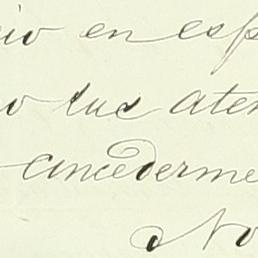 io en esp
o tue aten
concederme
No